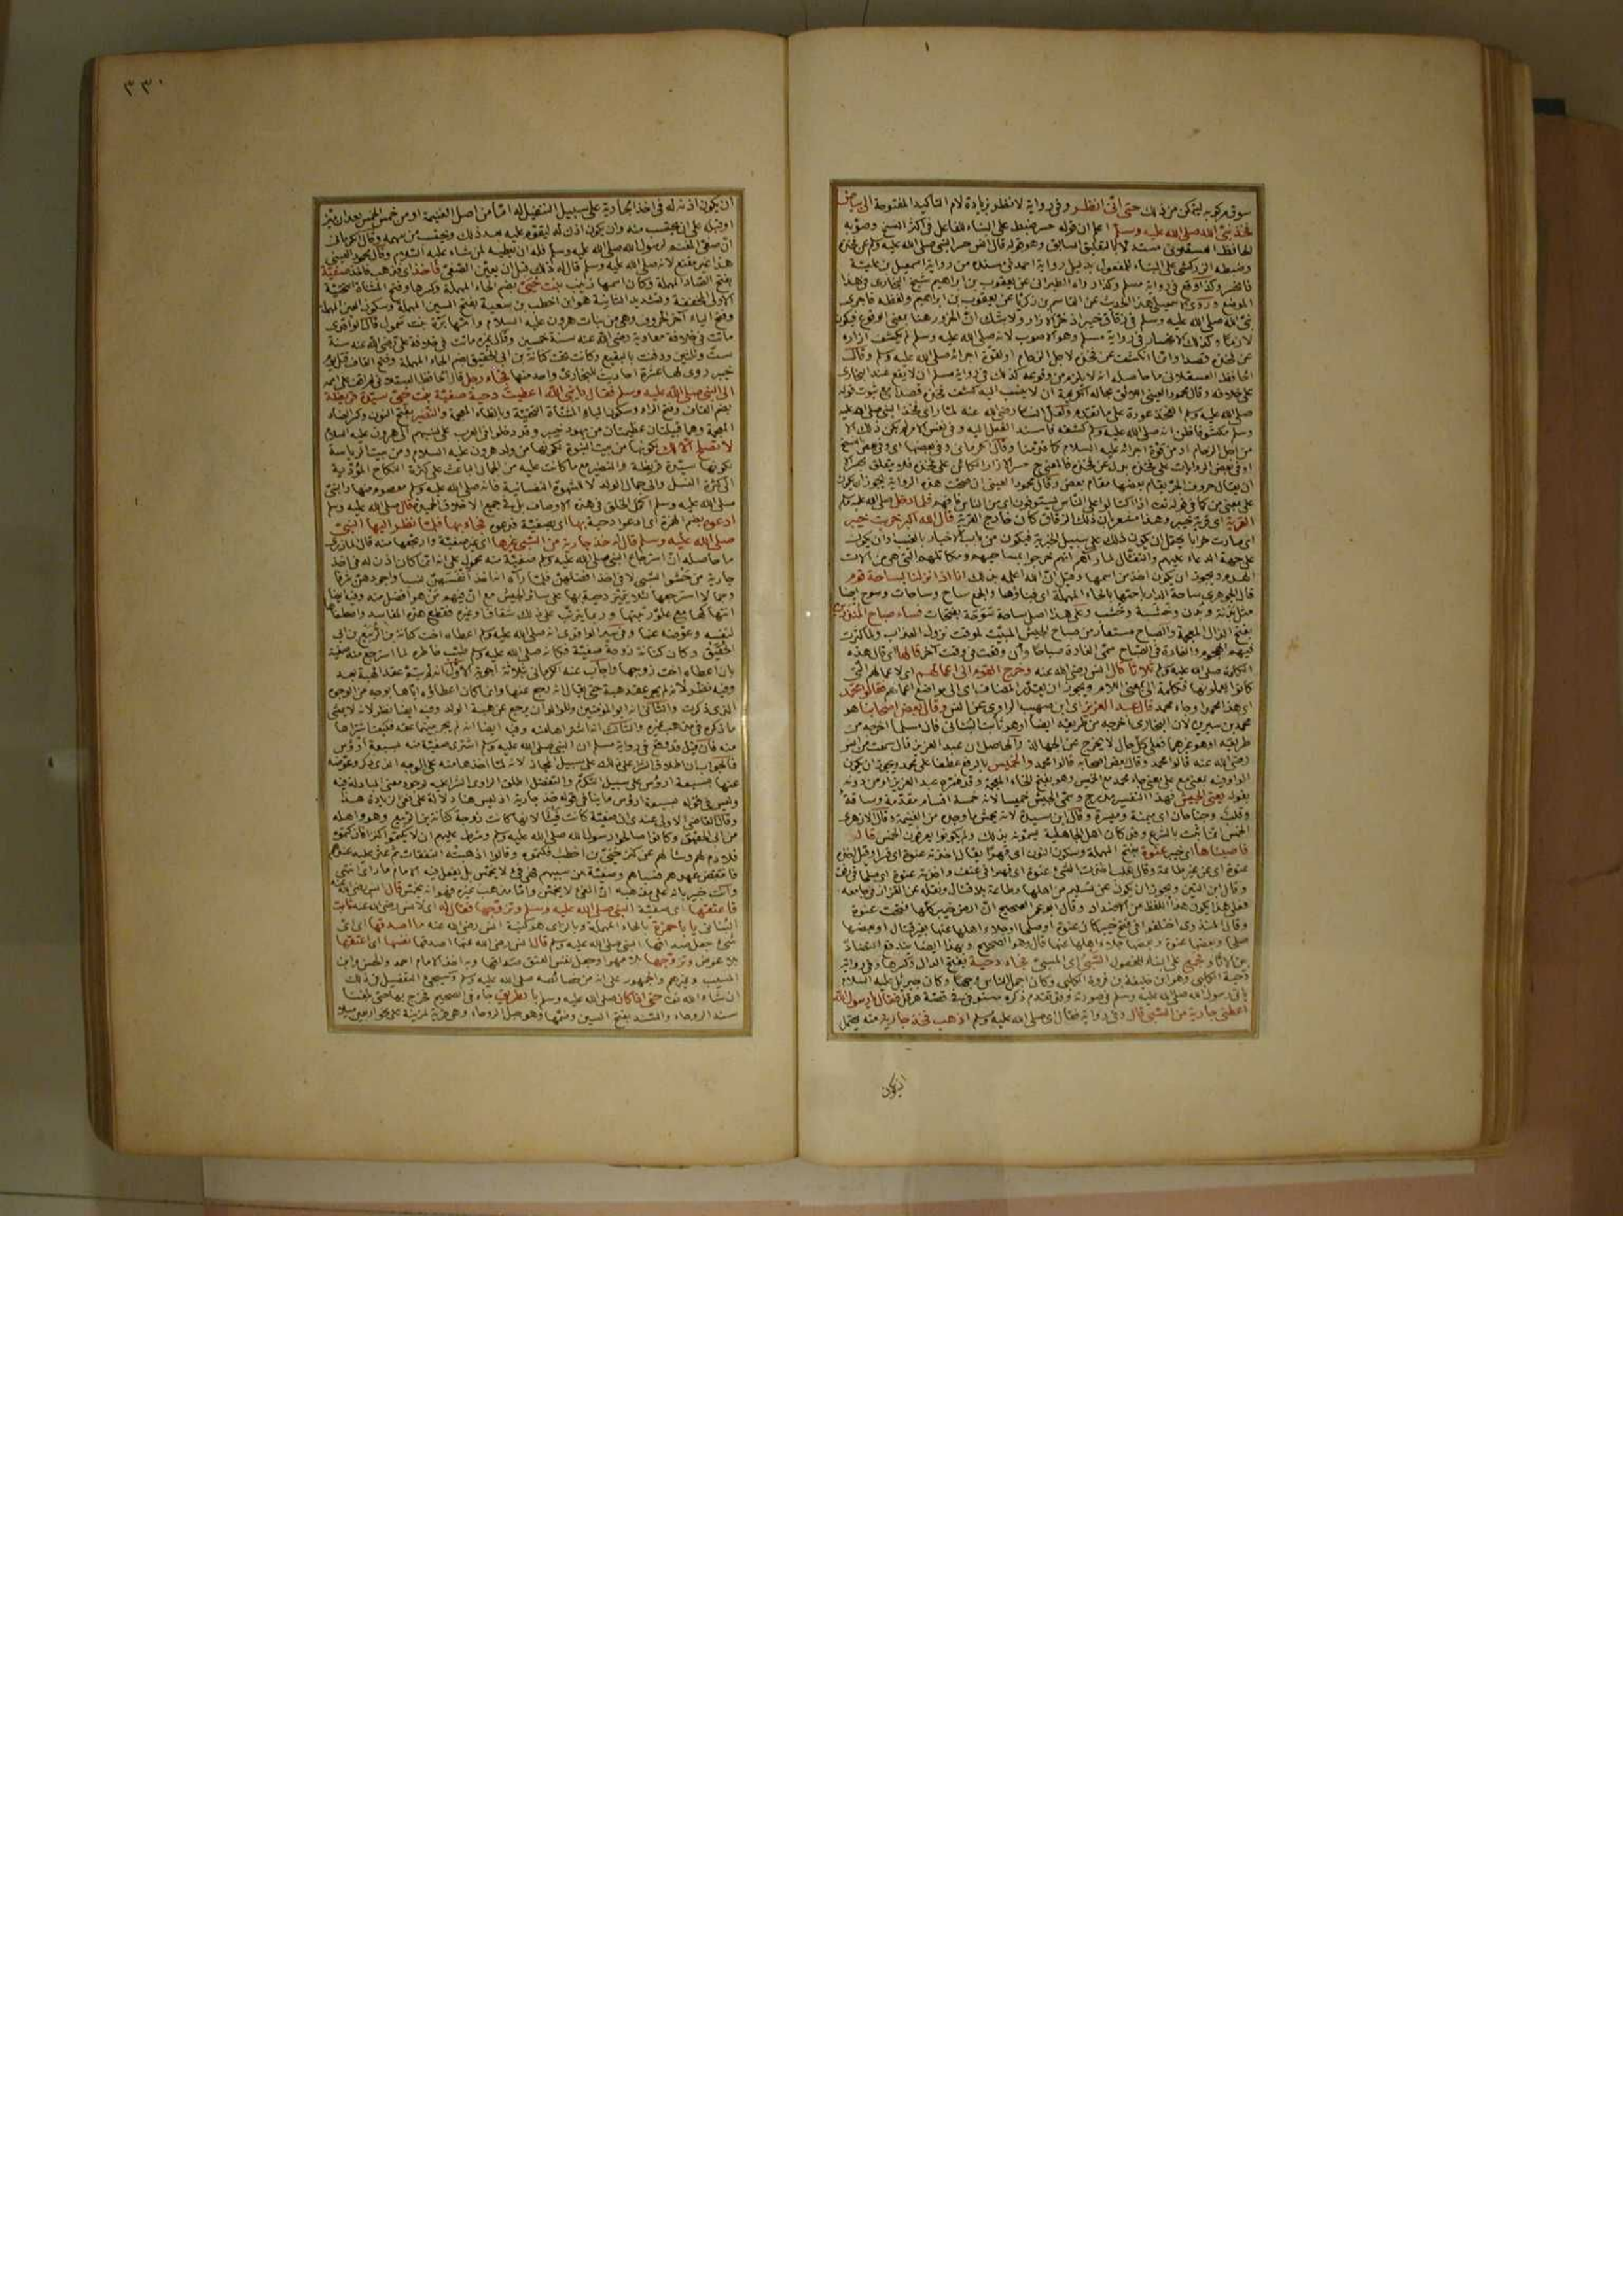 سوق مركوبه ليتمكن من ذلك حتى أنى انظر وفي رواية لانظر بزيادة لام التأكيد المفتوحة الى بياض
فخذ نبي الله صلى الله عليه وسلم اعلم ان قوله حسر ضبط على البناء للفاعل في اكثر النسخ وصوّبه
الحافظ العسقلاني مستدلا بالتعليق السابق وهو قوله قال انس حسر النبي صلى الله عليه وسلم عن فخذه
وضبطه الزركشى على البناء للمفعول بدليل رواية احمد في مسنده من رواية اسمعيل بن علية
فانحسر وكذا وقع في رواية مسلم وكذا رواه الطبراني عن يعقوب بن ابراهيم شيخ البخارى في هذا
الموضع وروى الاسمعيلى هذا الحديث عن القاسم بن زكريا عن يعقوب بن ابراهيم ولفظه فاجرى
نبي الله صلى الله عليه وسلم في زقاق خيبر اذ خرّ الازار ولا شك انّ الخرور هنا بمعنى الوقوع فيكون
لازما وكذلك الانحسار في رواية مسلم وهو الاصوب لانه صلى الله عليه وسلم لم يكشف ازاره
عن فخذه قصدا وانما انكشف عن فخذه لاجل الزحام او لقوة اجرائه صلى الله عليه وسلم وقال
الحافظ العسقلانى ما حاصله انه لا يلزم من وقوعه كذلك في رواية مسلم ان لا يقع عند البخارى
على خلافه وقال محمود العينى اللائق بحاله الكريمة ان لا ينسب اليه كشف فخذه قصدا مع ثبوت قوله
صلى الله عليه وسلم الفخذ عورة على ما تقدم ولعل انسا رضى الله عنه لما راى فخذ النبي صلى الله عليه
وسلم مكشوفا ظن انه صلى الله عليه وسلم كشفه فاسند الفعل اليه وفي نفس الامر لم يكن ذلك الا
من اجل الزحام او من قوة اجرائه عليه السلام كما قدمنا وقال الكرمانى وفي بعضها اى وفي بعض النسخ
او في بعض الروايات على فخذه بدل عن فخذه فالمعنى ح حسر الازار الكائن على فخذه فلا يتعلق بحسر الا
ان يقال حروف الجر يقام بعضها مقام بعض وقال محمود العينى ان صحت هذه الرواية يجوز ان يكون
على بمعنى من كما في قوله تعالى اذا اكتالوا على الناس يستوفون اى من الناس فافهم فلما دخل صلى الله عليه وسلم
القرية اى قرية خيبر وهذا مشعر ان ذلك الزقاق كان خارج القرية قال الله اكبر خربت خيبر
اى صارت خرابا يحتمل ان يكون ذلك على سبيل الخبرية فيكون من باب الاخبار بالغيب وان يكون
على جهة الدعاء عليهم والتفأل لما رآهم انهم خرجوا بمساحيهم ومكاتلهم التي هي من آلات
الهدم ويجوز ان يكون اخذ من اسمها وقيل ان الله اعلمه بذلك انا اذا نزلنا بساحة قوم
قال الجوهرى ساحة الدار باحتها بالحاء المهملة اى فناؤها والجمع ساح وساحات وسوح ايضا
مثل بدنة وبدن وخشبة وخشب وعلى هذا اصل ساحة سَوَحَة بفتحات فساء صباح المنذرين
بفتح الذال المعجمة والصباح مستعار من صباح الجيش المبيّت لوقت نزول العذاب ولما كثرت
فيهم الهجوم والغارة في الصباح سمى الغارة صباحا وان وقعت في وقت آخر قالها اى قال هذه
الكلمة صلى الله عليه وسلم ثلاثا قال انس رضى الله عنه وخرج القوم الى اعمالهم اى لاعمالهم التى
كانوا يعملونها فكلمة الى بمعنى اللام ويجوز ان يقدر المضاف اى الى مواضع اعمالهم فقالوا محمد
اى هذا محمد او جاء محمد قال عبد العزيز اى ابن صهيب الراوى عن انس وقال بعض اصحابنا هو
محمد بن سيرين لان البخارى اخرجه من طريقه ايضا او هو ثابت البنانى فان مسلما اخرجه من
طريقه او هو غيرهما فعلى كل حال لا يخرج عن الجهالة والحاصل ان عبد العزيز قال سمعت من انس
رضى الله عنه قالوا محمد وقال بعض اصحابه قالوا محمد والخميس بالرفع عطفا على محمد ويجوز ان يكون
الواو فيه بمعنى مع على معنى جاء محمد مع الخميس وهو بفتح الخاء المعجمة وقد فسره عبد العزيز او من دونه
بقوله يعنى الجيش فهذا التفسير مدرج وسمى الجيش خميسا لانه خمسة اقسام مقدمة وساقة
وقلب وجناحان اى ميمنة وميسرة وقال ابن سيده لانه يخمس ما وجده من الغنيمة وقال الازهرى
الخمس انما ثبت بالشرع وقد كان اهل الجاهلية يسمونه بذلك ولم يكونوا يعرفون الخمس قال
فاصبناها اى خيبر عنوة بفتح المهملة وسكون النون اى قهرا يقال اخذته عنوة اى قهرا وقيل اخذته
عنوة اى عن غير طاعة وقال ثعلب اخذت الشئ عنوة اى قهرا في عنف واخذته عنوة اى صلحا في رفق
وقال ابن التين ويجوز ان يكون عن تسليم من اهلها وطاعة بلا قتال ونقله عن القزاز في جامعه
فعلى هذا يكون هذا اللفظ من الاضداد وقال ابو عمر الصحيح ان ارض خيبر كلها فتحت عنوة
وقال المنذرى اختلفوا في فتح خيبر كانت عنوة او صلحا او جلاء اهلها عنها بغير قتال او بعضها
صلحا وبعضها عنوة وبعضها جلاء اهلها عنها قال وهو الصحيح وبهذا ايضا يندفع التضاد
بين الآثار وجُمِع على البناء للمفعول السَّبْىُ اى المسبى فجاء دحية بفتح الدال وكسرها وفي رواية
دحية الكلبى وهو ابن خليفة بن فروة الكلبى وكان اجمل الناس وجها وكان جبريل عليه السلام
ياتى رسول الله صلى الله عليه وسلم في صورته وقد تقدم ذكره مستوفى في قصة هرقل فقال يا رسول الله
اعطنى جارية من السبى قال وفي رواية فقال اى صلى الله عليه وسلم اذهب فخذ جارية منه يحتمل
ان يكون
٣٣٠
ان يكون اذنه له في اخذ الجارية على سبيل التنفيل له اما من اصل الغنيمة او من خمس الخمس بعد ان ميّز
او قبله على ان يحسب منه وان يكون اذن له ليقوم عليه بعد ذلك ويحسب من سهمه وقال الكرمانى
ان صفىّ المغنم لرسول الله صلى الله عليه وسلم فله ان يعطيه لمن شاء عليه السلام وقال محمود العينى
هذا غير مقنع لانه صلى الله عليه وسلم قال له ذلك قبل ان يعين الصفىّ فاخذ اى فذهب فاخذ صفية
بفتح الصاد المهملة وكان اسمها زينب بنت حُيَىّ بضم الحاء المهملة وكسرها وفتح المثناة التحتية
الاولى المخففة وتشديد الثانية هو ابن اخطب بن سعية بفتح السين المهملة وسكون العين المهملة
وفتح الياء آخر الحروف وهى من بنات هرون عليه السلام وامها برّة بنت سموال قال الواقدى
ماتت في خلافة معاوية رضى الله عنه سنة خمسين وقال غيره ماتت في خلافة على رضى الله عنه سنة
ست وثلثين ودفنت بالبقيع وكانت تحت كنانة بن ابى الحقيق بضم الحاء المهملة وفتح القاف قتل يوم
خيبر روى لها عشرة احاديث للبخارى واحد منها فجاء رجل قال الحافظ العسقلانى لم اقف على اسمه
الى النبي صلى الله عليه وسلم فقال يا نبي الله اعطيتَ دحية صفيّة بنت حُيَىّ سيّدة قريظة
بضم القاف وفتح الراء وسكون الياء المثناة التحتية وبالظاء المعجمة والنضير بفتح النون وكسر الضاد
المعجمة وهما قبيلتان عظيمتان من يهود خيبر وقد دخلوا في العرب على نسبهم الى هرون عليه السلام
لا تصلح الا لك لكونها من بيت النبوة لكونها من ولد هرون عليه السلام ومن بيت الرياسة
لكونها سيّدة قريظة والنضير مع ما كانت عليه من الجمال الباعث على كثرة النكاح المؤدية
الى كثرة النسل والى جمال الولد لا للشهوة النفسانية فانه صلى الله عليه وسلم معصوم منها والنبي
صلى الله عليه وسلم اكمل الخلق في هذه الاوصاف بل في جميع الاخلاق الحميدة قال صلى الله عليه وسلم
ادعوه بضم الهمزة اى ادعوا دحية بها اى بصفية فدعوه فجاء بها فلما نظر اليها النبي
صلى الله عليه وسلم قال له خذ جارية من السبى غيرها اى غير صفية وارتجعها منه قال المازرى
ما حاصله ان استرجاع النبي صلى الله عليه وسلم صفية منه محمول على انه انما كان اذن له في اخذ
جارية من حشو السبى لا في اخذ افضلهن فلما رآه انه اخذ انفسهن نسبا واجودهن شرفا
وجمالا استرجعها لئلا يتميز دحية بها على سائر الجيش مع ان فيهم من هو افضل منه وفيه ايضا
انتهاكها مع علو رتبتها وربما يترتب على ذلك شقاق وغيره فقطع هذه المفاسد واصطفاها
لنفسه وعوّضه عنها وفي سير الواقدى انه صلى الله عليه وسلم اعطاه اخت كنانة بن الربيع بن ابى
الحُقَيق وكان كنانة زوجة صفية فكانه صلى الله عليه وسلم طيّب خاطره لما استرجع منه صفية
بان اعطاه اخت زوجها واجاب عنه الكرمانى بثلاثة اجوبة الاول انه لم يتم عقد الهبة بعد
وفيه نظر لانه لم يجر عقد هبة حتى يقال انه رجع عنها وانما كان اعطاؤه اياها بوجه من الوجوه
الذى ذكرت والثانى انه ابو المؤمنين وللوالد ان يرجع عن هبة الولد وفيه ايضا نظر لانه لا يمشى
ما ذكره في مذهب غيره والثالث انه اشتراها منه وفيه ايضا انه لم يجر بينهما عقد فكيف اشتراها
منه فان قيل قد وقع في رواية مسلم ان النبي صلى الله عليه وسلم اشترى صفية منه بسبعة ارؤس
فالجواب ان اطلاق الشراء على ذلك على سبيل المجاز لانه لما اخذها منه على الوجه الذى ذكر وعوّضه
عنها بسبعة ارؤس على سبيل التكرم والتفضل اطلق الراوى الشراء عليه لوجود معنى المبادلة فيه
وليس في قوله بسبعة ارؤس ما ينافى قوله خذ جارية اذ ليس هنا دلالة على نفى الزيادة هذا
وقال القاضى الاولى عندى ان صفية كانت فيئا لانها كانت زوجة كنانة بن الربيع وهو واهله
من ابى الحقيق وكانوا صالحوا رسول الله صلى الله عليه وسلم وشرط عليهم ان لا يكتموا كنزا فان كتموه
فلا ذمة لهم وسالهم عن كنز حيىّ بن اخطب فكتموه وقالوا اذهبته النفقات ثم عثر عليه عندهم
فانتقض عهدهم فسباهم وصفية من سبيهم فهى فئ لا يخمس بل يفعل فيه الامام ما راى انتهى
وانت خبير بانه على مذهبه ان الفئ لا يخمس واما مذهب غيره فهو انه يخمس قال انس رضى الله عنه
فاعتقها اى صفية النبي صلى الله عليه وسلم وتزوجها فقال له اى لانس رضى الله عنه ثابت
البنانى يا با حمزة بالحاء المهملة وبالزاى هو كنية انس رضى الله عنه ما اصدقها اى اىّ
شئ جعل صداقها النبي صلى الله عليه وسلم قال انس رضى الله عنه اصدقها نفسها اى اعتقها
بلا عوض وتزوجها بلا مهر او جعل نفس العتق صداقها وبه اخذ الامام احمد والحسن وابن
المسيب وغيرهم والجمهور على انه من خصائصه صلى الله عليه وسلم وسيجئ التفصيل في ذلك
ان شاء الله تعالى حتى اذا كان صلى الله عليه وسلم بالطريق جاء في الصحيح فخرج بها حتى بلغنا
سدّ الروحاء والسد بفتح السين وضمها وهو جبل الروحاء وهى قرية لمزينة على نحو اربعين ميلا